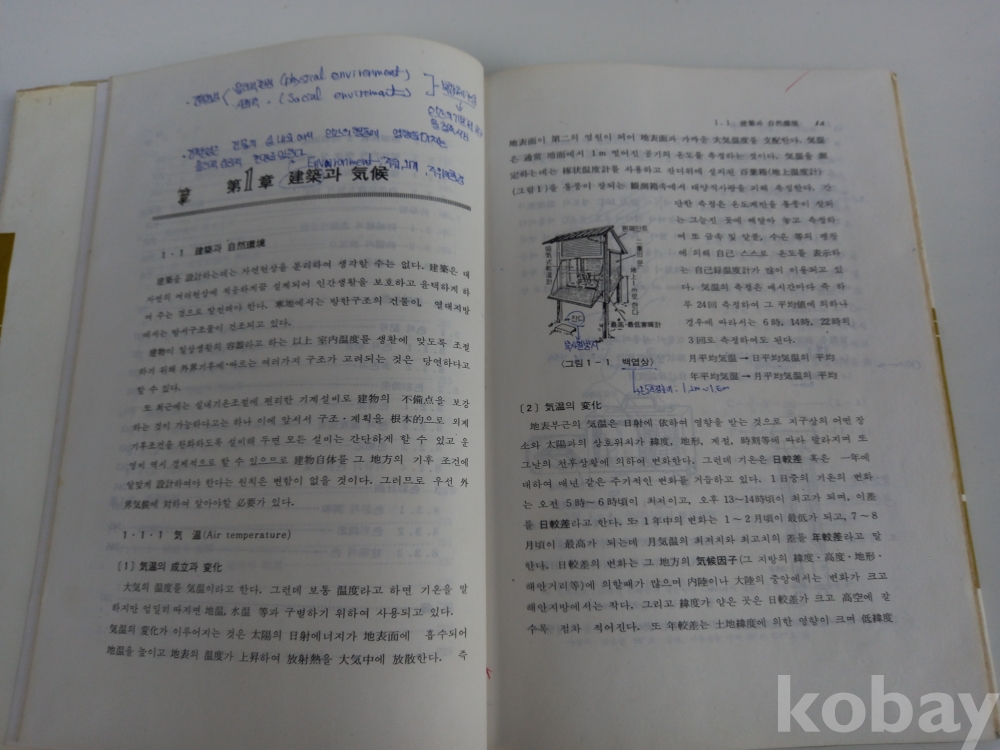 (physical envirerment)
(Social envirement)
Environment
第1章 建築과 気候
1·1 建築과 自然環境
建築을 設計하는데는 자연현상을 분리하여 생각할 수는 없다. 建築은 대
자연의 여러현상에 적응하게끔 설계되어 인간생활을 보호하고 윤택하게 하
여 주는 것으로 발전해야 한다. 寒地에서는 방한구조의 건물이, 열대지방
에서는 방서구조물이 건조되고 있다.
建物이 일상생활의 容器라고 하는 以上 室内温度를 생활에 맞도록 조절
하기 위해 外界기후에 따르는 여러가지 구조가 고려되는 것은 당연하다고
할 수 있다.
또 최근에는 실내기온조절에 편리한 기계설비로 建物의 不備点을 보강
하는 것이 가능하다고는 하나 이에 앞서서 구조·계획을 根本的으로 외계
기후조건을 완화하도록 설비해 두면 모든 설비는 간단하게 할 수 있고 운
영비 역시 경제적으로 할 수 있으므로 建物自体를 그 地方의 기후 조건에
알맞게 設計하여야 한다는 원칙은 변함이 없을 것이다. 그러므로 우선 外
界気候에 対하여 알아야할 必要가 있다.
1·1·1 気 温(Air temperature)
[1] 気温의 成立과 変化
大気의 温度를 気温이라고 한다. 그런데 보통 温度라고 하면 기온을 말
하지만 엄밀히 따지면 地温, 水温 等과 구별하기 위하여 사용되고 있다.
気温의 変化가 이루어지는 것은 太陽의 日射에너지가 地表面에 흡수되어
地温을 높이고 地表의 温度가 上昇하여 放射熱을 大気中에 放散한다. 즉
1.1. 建築과 自然環境
地表面이 第二의 열원이 되어 地表面과 가까운 大気温度를 支配한다. 気温
은 通常 地面에서 1m 떨어진 공기의 온도를 측정하는 것이다. 気温을 測
定하는데는 棒状温度計를 사용하고 잔디위에 설치된 百葉箱(地上温度計)
(그림 1)을 통풍이 잘되는 観測箱속에서 태양직사광을 피해 측정한다. 간
단한 측정은 온도계만을 통풍이 잘되
는 그늘진 곳에 매달아 놓고 측정하
며 또 금속 및 알콜, 수은 等의 팽창
에 의해 自己 스스로 온도를 表示하
는 自己録温度計가 많이 이용되고 있
다. 気温의 측정은 매시간마다 즉 하
루 24회 측정하여 그 平均値에 의하나
경우에 따라서는 6時, 14時, 22時의
3回로 측정하여도 된다.
月平均気温 → 日平均気温의 平均
年平均気温 → 月平均気温의 平均
흰페인트
잔디
最高·最低寒暖計
〈그림 1-1. 백엽상〉
1.2m~1.5m
[2] 気温의 変化
地表부근의 気温은 日射에 依하여 영향을 받는 것으로 지구상의 어떤 장
소와 太陽과의 상호위치가 緯度, 地形, 계절, 時刻等에 따라 달라지며 또
그날의 천후상황에 의하여 변화한다. 그런데 기온은 日較差 혹은 一年에
대하여 매년 같은 주기적인 変化를 거듭하고 있다. 1日중의 기온의 변화
는 오전 5時~6時頃이 최저이고, 오후 13~14時頃이 최고가 되며, 이差
를 日較差라고 한다. 또 1年中의 변화는 1~2月頃이 最低가 되고, 7~8
月頃이 最高가 되는데 月気温의 최저치와 최고치의 差를 年較差라고 말
한다. 日較差의 변화는 그 地方의 気候因子(그 지방의 緯度·高度·地形·
해안거리等)에 의할때가 많으며 内陸이나 大陸의 中央에서는 변화가 크고
해안지방에서는 작다. 그리고 緯度가 얕은 곳은 日較差가 크고 高空에 갈
수록 점차 적어진다. 또 年較差는 土地緯度에 의한 영향이 크며 低緯度
kobay